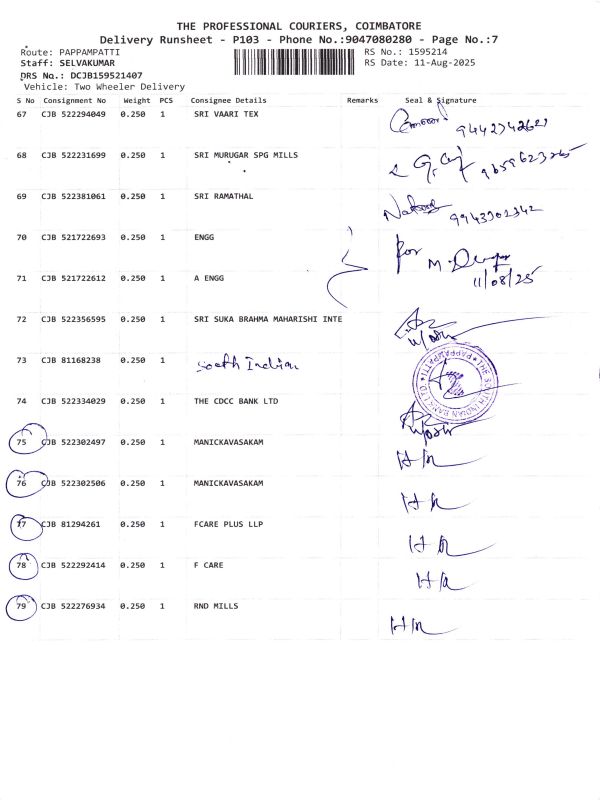 THE PROFESSIONAL COURIERS, COIMBATORE
Delivery Runsheet - P103 - Phone No.:9047080280 - Page No.:7
Route: PAPPAMPATTI RS No.: 1595214
Staff: SELVAKUMAR RS Date: 11-Aug-2025
DRS No.: DCJB159521407
Vehicle: Two Wheeler Delivery
S No Consignment No Weight PCS Consignee Details Remarks Seal & Signature
67 CJB 522294049 0.250 1 SRI VAARI TEX
68 CJB 522231699 0.250 1 SRI MURUGAR SPG MILLS
69 CJB 522381061 0.250 1 SRI RAMATHAL 9943302342
70 CJB 521722693 0.250 1 ENGG for
71 CJB 521722612 0.250 1 A ENGG 11/08/25
72 CJB 522356595 0.250 1 SRI SUKA BRAHMA MAHARISHI INTE
73 CJB 81168238 0.250 1 South Indian THE SOUTH INDIAN BANK LTD PAPPAMPATTI
74 CJB 522334029 0.250 1 THE CDCC BANK LTD
75 CJB 522302497 0.250 1 MANICKAVASAKAM
76 CJB 522302506 0.250 1 MANICKAVASAKAM
77 CJB 81294261 0.250 1 FCARE PLUS LLP
78 CJB 522292414 0.250 1 F CARE
79 CJB 522276934 0.250 1 RND MILLS